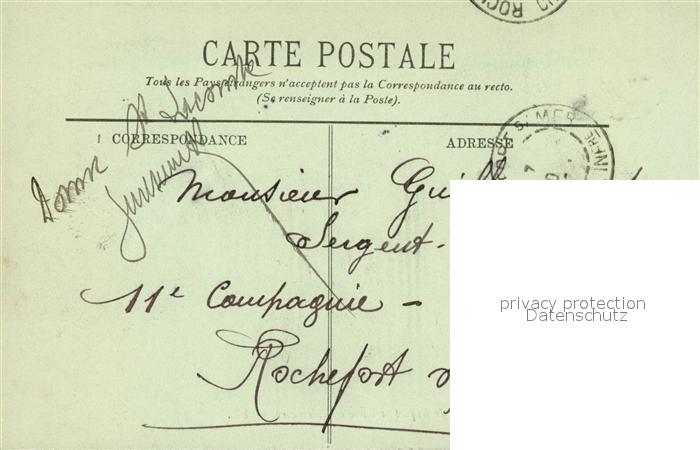 ROCH
CARTE POSTALE
Tous les Pays étrangers n'acceptent pas la Correspondance au recto.
(Se renseigner à la Poste).
CORRESPONDANCE
ADRESSE
S/ MER
INFRE
Monsieur Guill
Sergent-
11e Compagnie -
Rochefort
privacy protection
Datenschutz